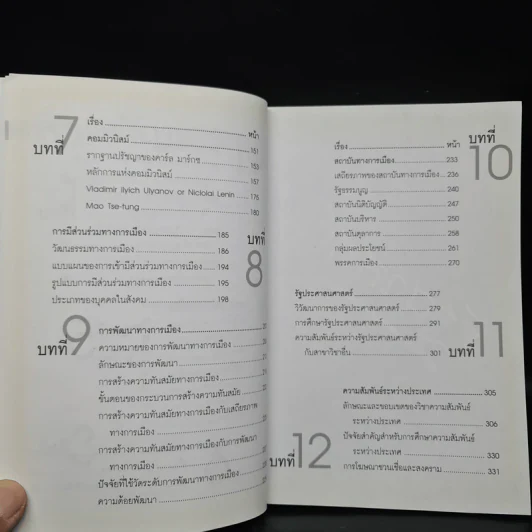 บทที่ 7
เรื่อง หน้า
คอมมิวนิสม์ 151
รากฐานปรัชญาของคาร์ล มาร์กซ 153
หลักการแห่งคอมมิวนิสม์ 157
Vladimir Ilyich Ulyanov or Niciolai Lenin 176
Mao Tse-tung 180
บทที่ 8
การมีส่วนร่วมทางการเมือง 185
วัฒนธรรมทางการเมือง 186
แบบแผนของการเข้ามีส่วนร่วมทางการเมือง 194
รูปแบบการมีส่วนร่วมทางการเมือง 195
ประเภทของบุคคลในสังคม 198
บทที่ 9
การพัฒนาทางการเมือง
ความหมายของการพัฒนาทางการเมือง
ลักษณะของการพัฒนา
การสร้างความทันสมัยทางการเมือง
ขั้นตอนของกระบวนการสร้างความทันสมัย
การสร้างความทันสมัยทางการเมืองกับเสถียรภาพ
ทางการเมือง
การสร้างความทันสมัยทางการเมืองกับการพัฒนา
ทางการเมือง
ปัจจัยที่ใช้วัดระดับการพัฒนาทางการเมือง
ความด้อยพัฒนา
บทที่ 10
เรื่อง หน้า
สถาบันทางการเมือง 233
เสถียรภาพของสถาบันทางการเมือง 236
รัฐธรรมนูญ 240
สถาบันนิติบัญญัติ 247
สถาบันบริหาร 250
สถาบันตุลาการ 258
กลุ่มผลประโยชน์ 261
พรรคการเมือง 270
บทที่ 11
รัฐประศาสนศาสตร์ 277
วิวัฒนาการของรัฐประศาสนศาสตร์ 279
การศึกษารัฐประศาสนศาสตร์ 291
ความสัมพันธ์ระหว่างรัฐประศาสนศาสตร์
กับสาขาวิชาอื่น 301
บทที่ 12
ความสัมพันธ์ระหว่างประเทศ 305
ลักษณะและขอบเขตของวิชาความสัมพันธ์
ระหว่างประเทศ 306
ปัจจัยสำคัญสำหรับการศึกษาความสัมพันธ์
ระหว่างประเทศ 330
การโฆษณาชวนเชื่อและสงคราม 331